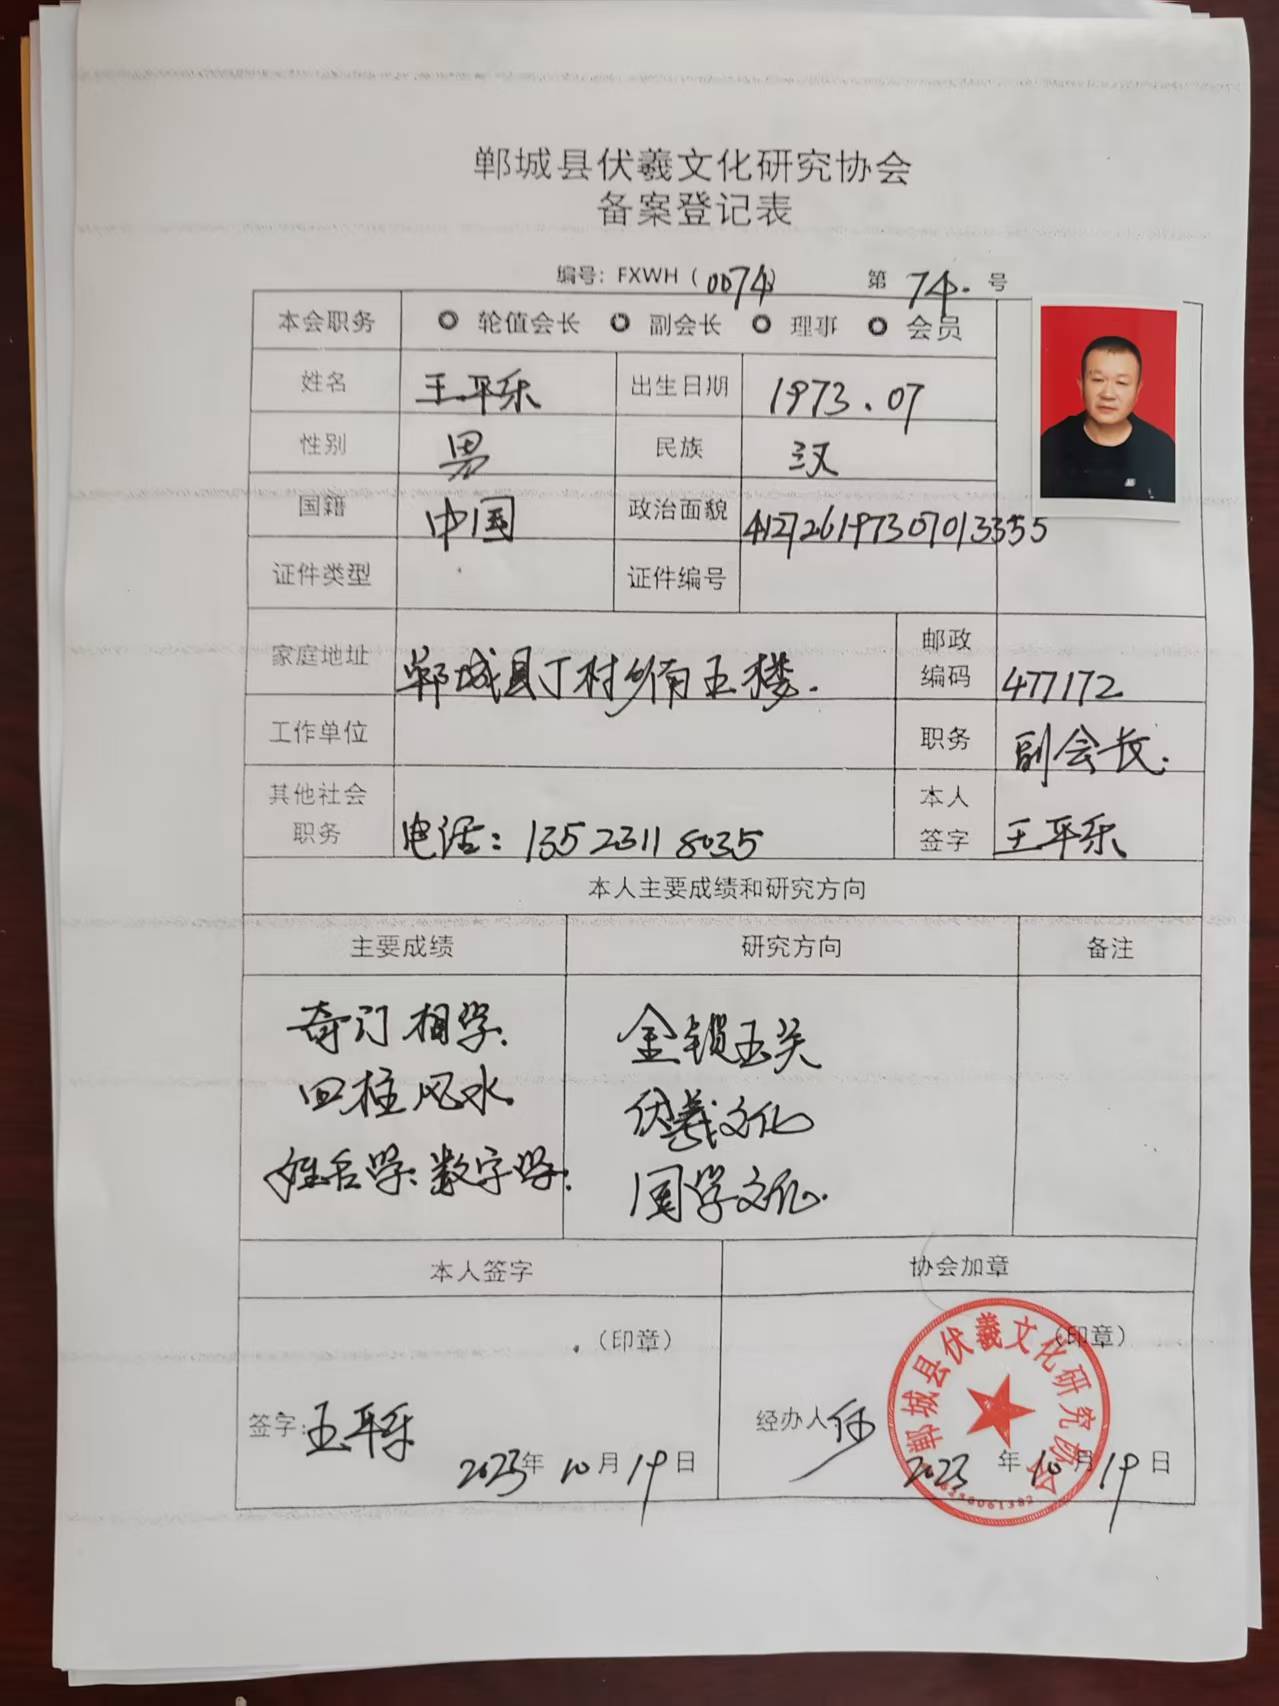 郸城县伏羲文化研究协会
备案登记表
编号：FXWH（0074） 第 74. 号
本会职务 轮值会长 副会长 理事 会员
姓名 王平乐 出生日期 1973.07
性别 男 民族 汉
国籍 中国 政治面貌 412726197307013355
证件类型 证件编号
家庭地址 郸城县丁村乡南王楼. 邮政编码 477172
工作单位 职务 副会长.
其他社会职务 电话：13523118035 本人签字 王平乐
本人主要成绩和研究方向
主要成绩 研究方向 备注
奇门 相学. 金锁玉关
四柱 风水 伏羲文化
姓名学：数字学： 国学文化.
本人签字 协会加章
（印章） （印章）
签字：王平乐 经办人：
2023年 10月19日 2023年 10月19日
郸城县伏羲文化研究协会